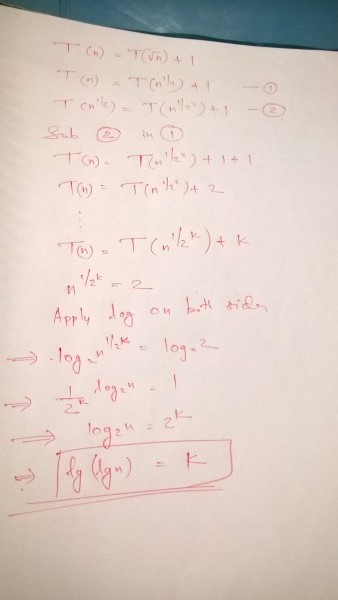 T(n) = T(√n) + 1
T(n) = T(n^1/2) + 1 — ①
T(n^1/2) = T(n^1/2^2) + 1 — ②
Sub ② in ①
T(n) = T(n^1/2^2) + 1 + 1
T(n) = T(n^1/2^2) + 2
⋮
T(n) = T(n^1/2^k) + k
n^1/2^k = 2
Apply log on both sides
⇒ log₂ n^1/2^k = log₂ 2
⇒ 1/2^k log₂ n = 1
⇒ log₂ n = 2^k
⇒ lg(lg n) = k